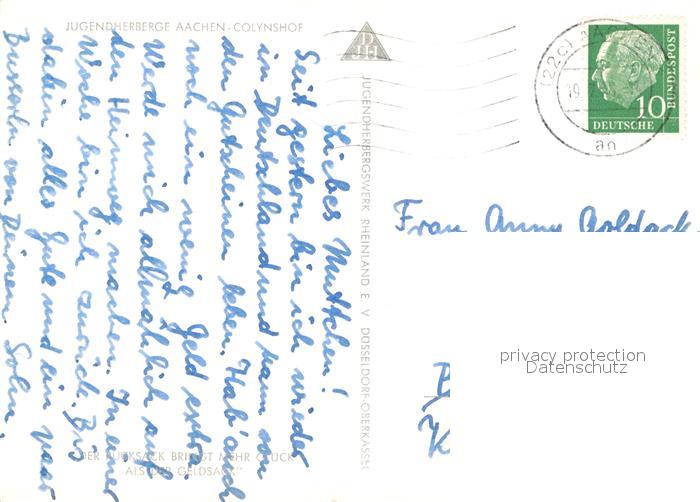 JUGENDHERBERGE AACHEN-COLYNSHOF
Liebes Muttchen!
Seit gestern bin ich wieder
in Deutschland und kann von
den Gutscheinen leben. Hab' auch
noch ein wenig Geld extra.
Werde mich allmählich auf
den Heimweg machen. In einer
Woche bin ich zurück. Bis
dahin alles Gute und ein paar
Busserln von Deinem Sohn,
"DER RUCKSACK BRINGT MEHR GLÜCK
ALS DER GELDSACK"
DJH
JUGENDHERBERGSWERK RHEINLAND E. V. DÜSSELDORF-OBERKASSEL
(22c) AACHEN
19
an
10
DEUTSCHE
BUNDESPOST
Frau Anny
privacy protection
Datenschutz